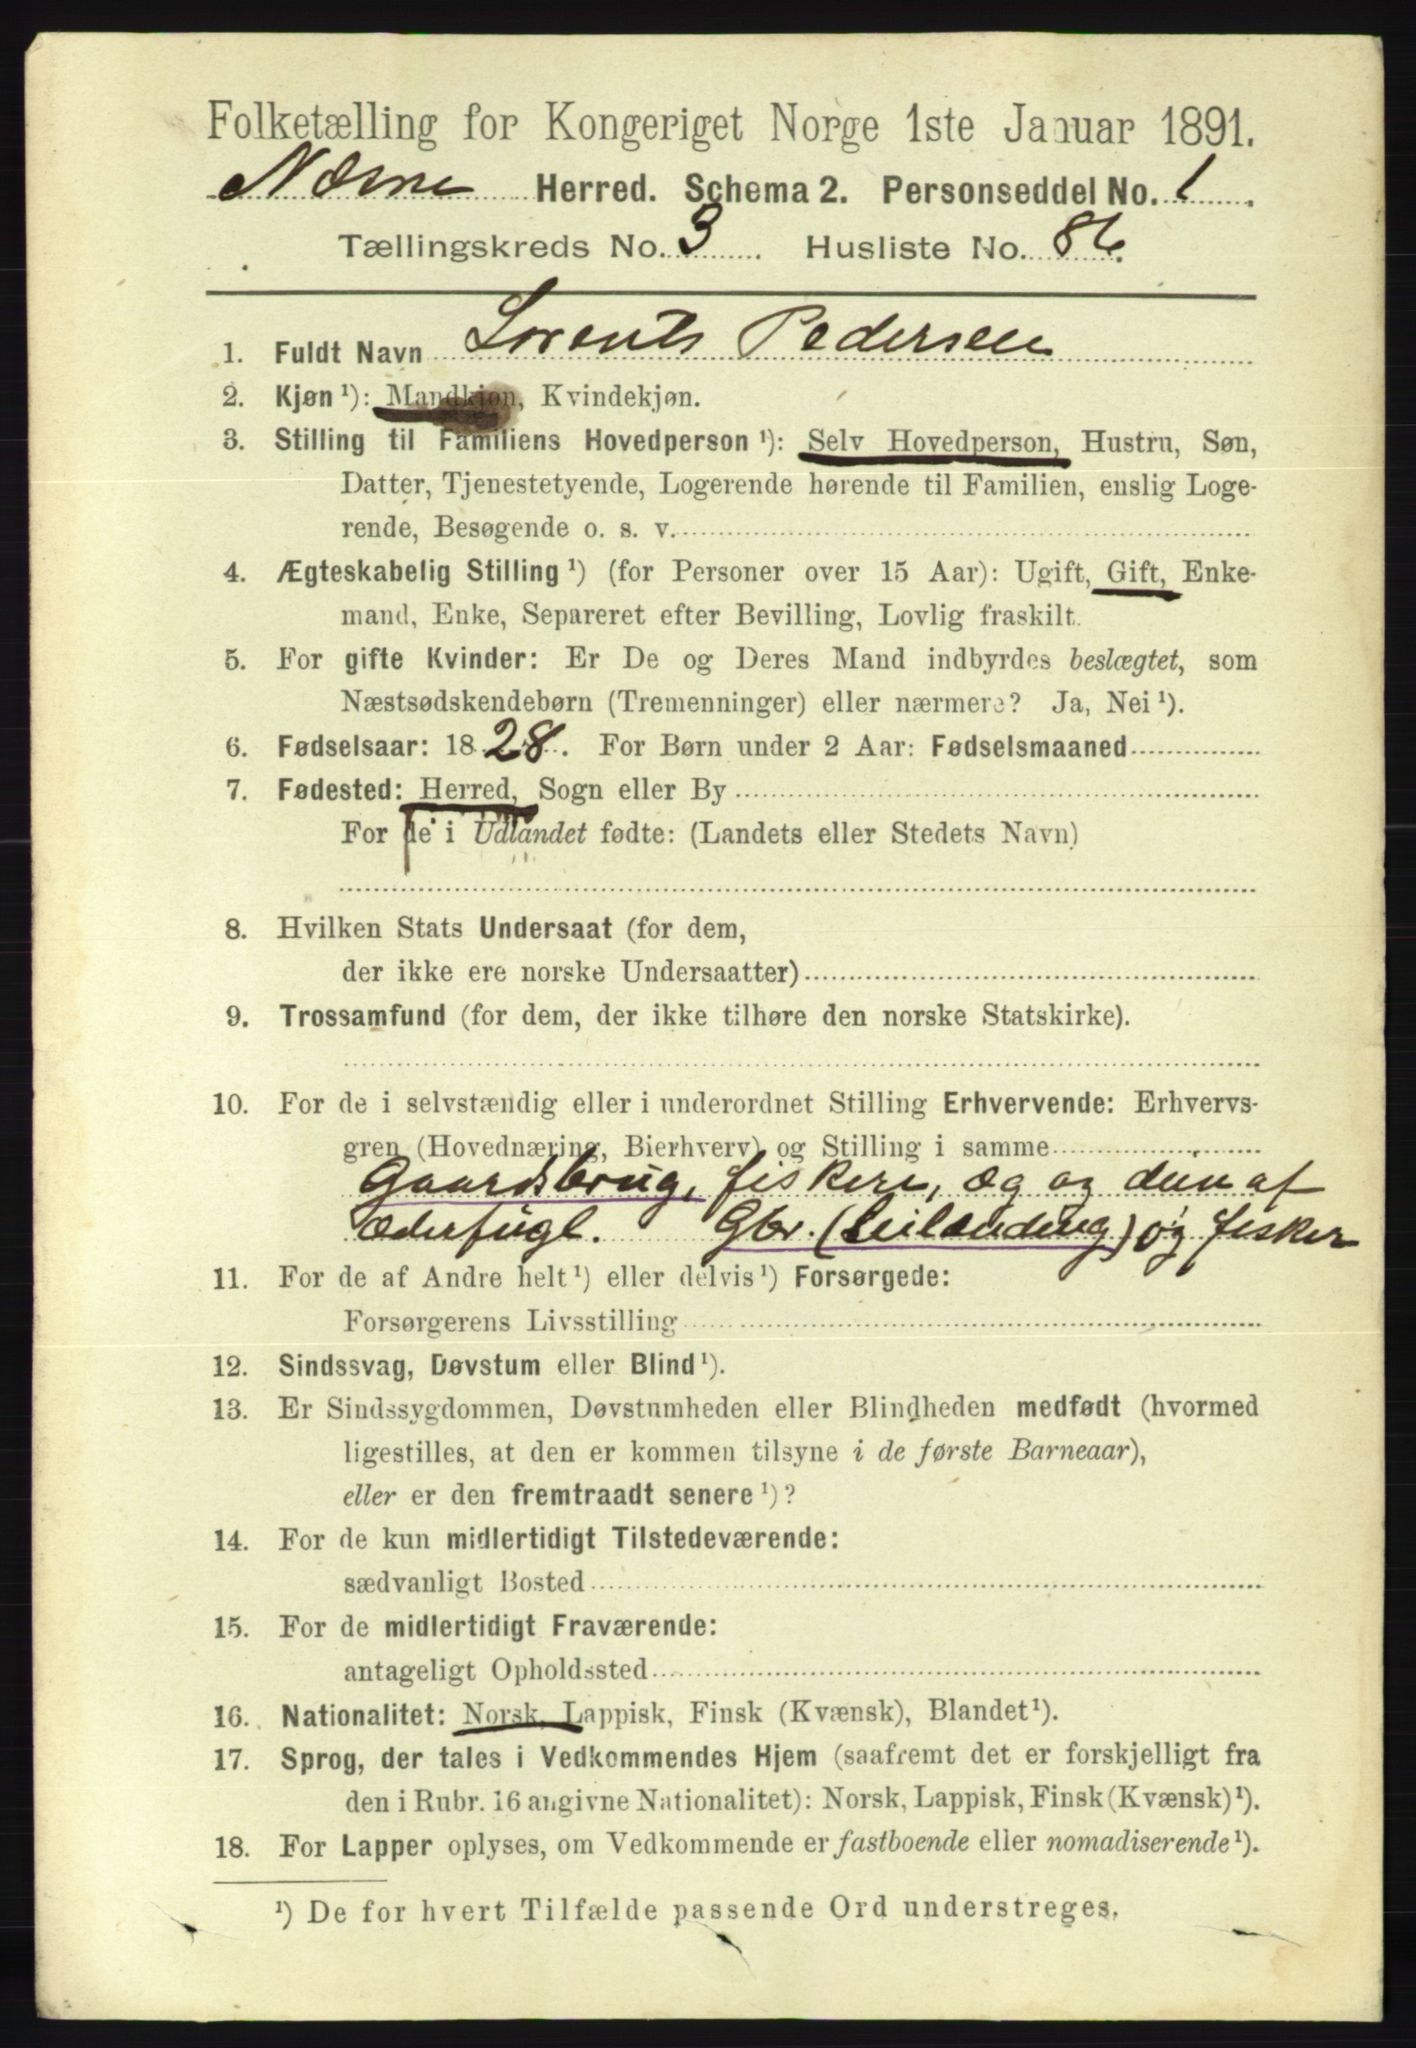 Folketælling for Kongeriget Norge 1ste Januar 1891.
Næsne Herred. Schema 2. Personseddel No. 1.
Tællingskreds No. 3. Husliste No. 86.
1. Fuldt Navn Lorents Pedersen
2. Kjøn ¹): Mandkjøn, Kvindekjøn.
3. Stilling til Familiens Hovedperson ¹): Selv Hovedperson, Hustru, Søn,
Datter, Tjenestetyende, Logerende hørende til Familien, enslig Loge-
rende, Besøgende o. s. v.
4. Ægteskabelig Stilling ¹) (for Personer over 15 Aar): Ugift, Gift, Enke-
mand, Enke, Separeret efter Bevilling, Lovlig fraskilt.
5. For gifte Kvinder: Er De og Deres Mand indbyrdes beslægtet, som
Næstsødskendebørn (Tremenninger) eller nærmere? Ja, Nei ¹).
6. Fødselsaar: 1828. For Børn under 2 Aar: Fødselsmaaned
7. Fødested: Herred, Sogn eller By
For de i Udlandet fødte: (Landets eller Stedets Navn)
8. Hvilken Stats Undersaat (for dem,
der ikke ere norske Undersaatter)
9. Trossamfund (for dem, der ikke tilhøre den norske Statskirke).
10. For de i selvstændig eller i underordnet Stilling Erhvervende: Erhvervs-
gren (Hovednæring, Bierhverv) og Stilling i samme
Gaardsbrug, fiskeri, æg og dun af
Æderfugl. Gbr. (Leilænding) og fisker
11. For de af Andre helt ¹) eller delvis ¹) Forsørgede:
Forsørgerens Livsstilling
12. Sindssvag, Døvstum eller Blind ¹).
13. Er Sindssygdommen, Døvstumheden eller Blindheden medfødt (hvormed
ligestilles, at den er kommen tilsyne i de første Barneaar),
eller er den fremtraadt senere ¹)?
14. For de kun midlertidigt Tilstedeværende:
sædvanligt Bosted
15. For de midlertidigt Fraværende:
antageligt Opholdssted
16. Nationalitet: Norsk, Lappisk, Finsk (Kvænsk), Blandet ¹).
17. Sprog, der tales i Vedkommendes Hjem (saafremt det er forskjelligt fra
den i Rubr. 16 angivne Nationalitet): Norsk, Lappisk, Finsk (Kvænsk) ¹).
18. For Lapper oplyses, om Vedkommende er fastboende eller nomadiserende ¹).
¹) De for hvert Tilfælde passende Ord understreges.